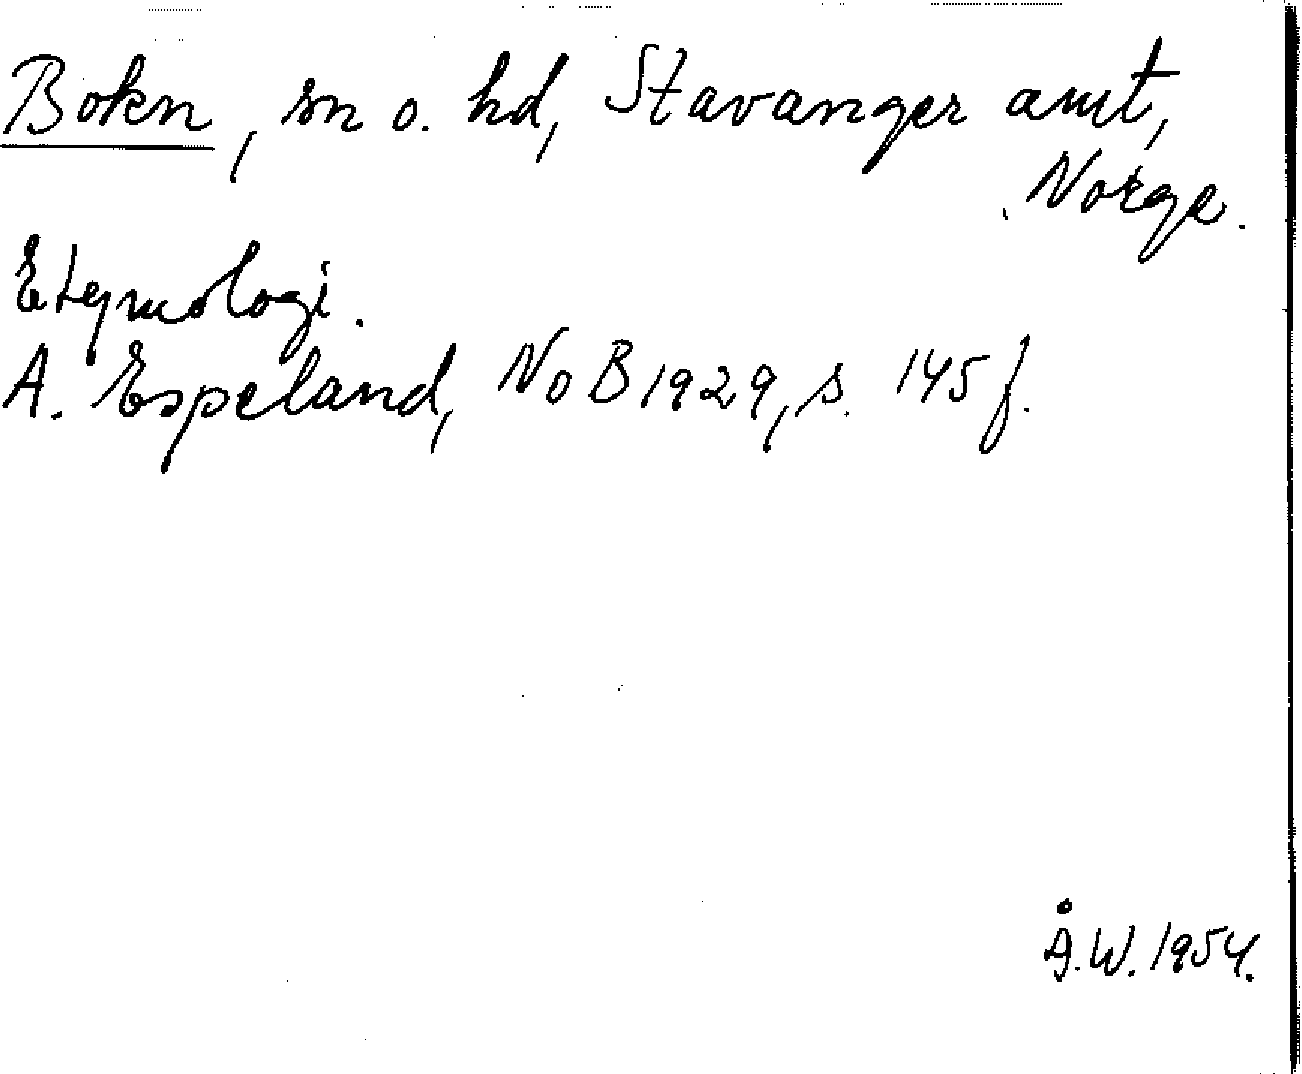 Bokn, sn o. hd, Stavanger amt,
Norge.
Etymologi.
A. Espeland, NoB 1929, s. 145 f.
Å.W. 1954.